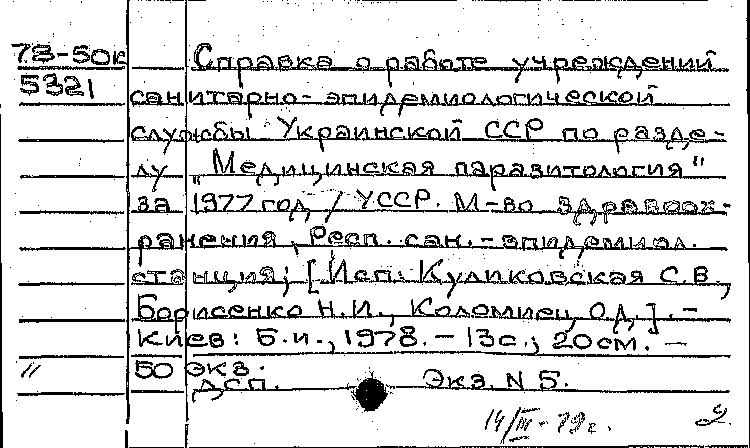 78-50к Справка о работе учреждений
5321 санитарно-эпидемиологической
службы Украинской ССР по разде-
лу "Медицинская паразитология"
за 1977 год / УССР. М-во здравоох-
ранения, Респ. сан.-эпидемиол.
станция; [Исп: Куликовская С.В.,
Борисенко Н.И., Коломиец О.Д.]. -
Киев: Б.и., 1978. - 13с.; 20см. -
" 50 экз.
ДСП. Экз. N 5.
14/III-79г.